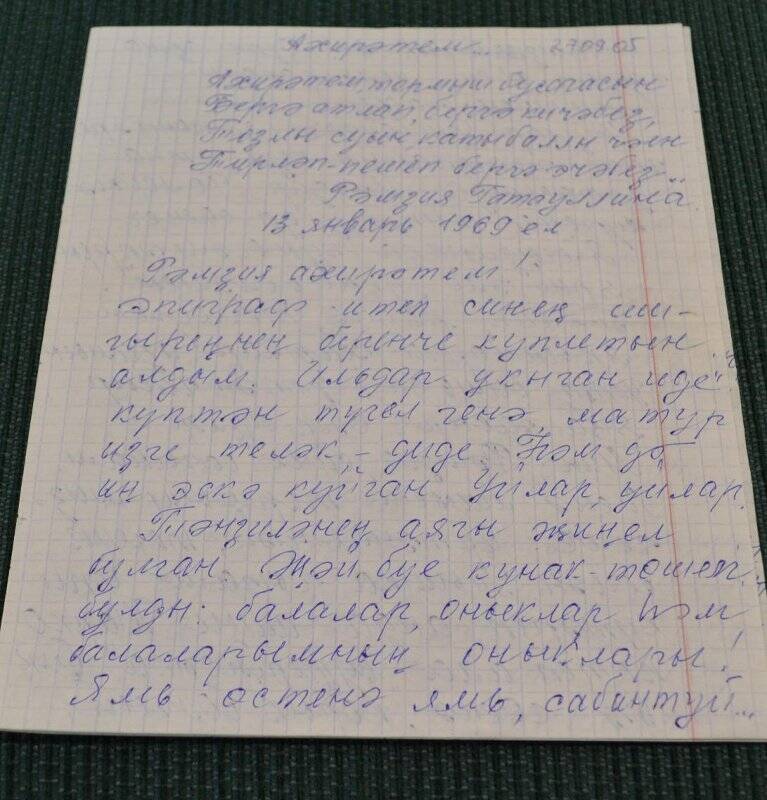 Ахирәтем... 27.09.05
Ахирәтем, тормыш бусагасын
Бергә атлап, бергә кичәбез,
Тозлы суын, катыбалын чәен
Тирләп-пешеп бергә эчәбез...
Рәмзия Гатауллина
13 январь 1969 ел
Рәмзия ахирәтем!
эпиграф итеп синең ши-
гыреңнең беренче куплетын
алдым. Ильдар укыган иде
күптән түгел генә, матур
изге теләк, - диде. Һәм дә
иң эскә куйган Уйлар, уйлар.
Тәнзиләнең аягы җиңел
булган. Җәй буе кунак төшеп
булды: балалар, оныклар һәм
балаларымның оныклары!
Ямь өстенә ямь, сабантуй...